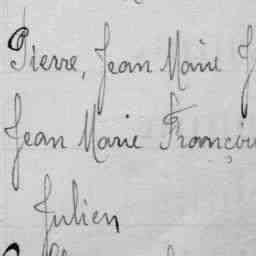 Pierre, Jean Marie J
Jean Marie Françoi
Julien